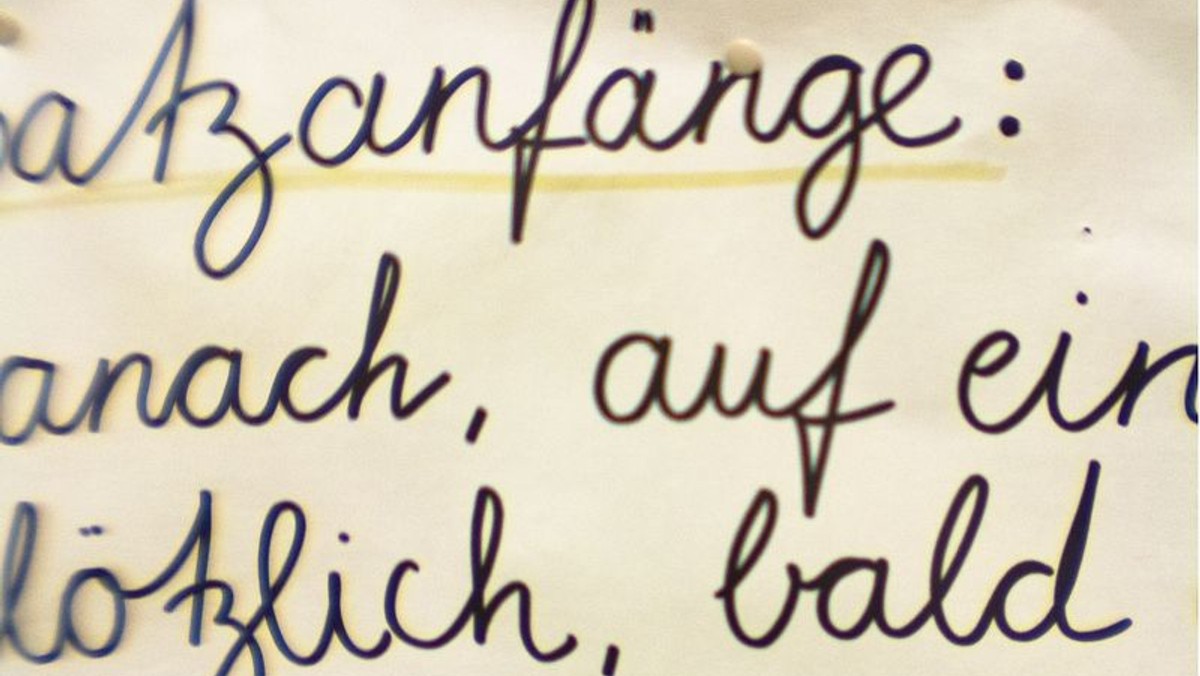 atzanfänge:
anach, auf ein
lötzlich, bald